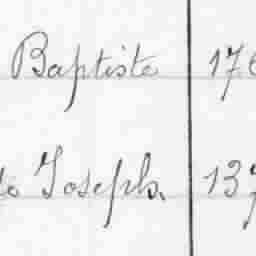 Baptiste 176
Joseph 137